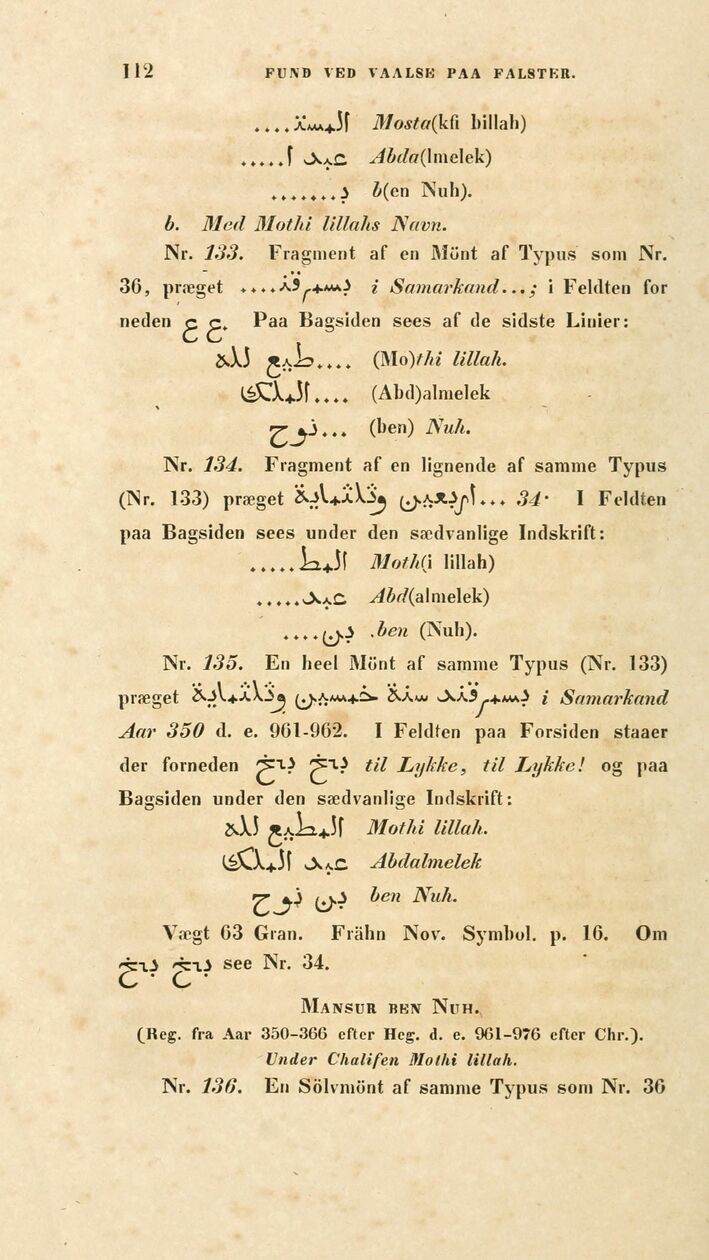 112 FUND VED VAALSE PAA FALSTER.
....المستـ Mosta(kfi billah)
.....عبد ا Abda(lmelek)
.......ب b(en Nuh).
b. Med Mothi lillahs Navn.
Nr. 133. Fragment af en Mönt af Typus som Nr.
36, præget ....بسمرقـ i Samarkand...; i Feldten for
neden ع ع. Paa Bagsiden sees af de sidste Linier:
....طيع لله (Mo)thi lillah.
....الملك (Abd)almelek
...نوح (ben) Nuh.
Nr. 134. Fragment af en lignende af samme Typus
(Nr. 133) præget ...اربعين وثلثماية 34· I Feldten
paa Bagsiden sees under den sædvanlige Indskrift:
.....المط Moth(i lillah)
.....عبد Abd(almelek)
....بن .ben (Nuh).
Nr. 135. En heel Mönt af samme Typus (Nr. 133)
præget بسمرقند سنة خمسين وثلثماية i Samarkand
Aar 350 d. e. 961-962. I Feldten paa Forsiden staaer
der forneden بخ بخ til Lykke, til Lykke! og paa
Bagsiden under den sædvanlige Indskrift:
المطيع لله Mothi lillah.
عبد الملك Abdalmelek
بن نوح ben Nuh.
Vægt 63 Gran. Frähn Nov. Symbol. p. 16. Om
see Nr. 34.
MANSUR BEN NUH.
(Reg. fra Aar 350-366 efter Heg. d. e. 961-976 efter Chr.).
Under Chalifen Mothi lillah.
Nr. 136. En Sölvmönt af samme Typus som Nr. 36